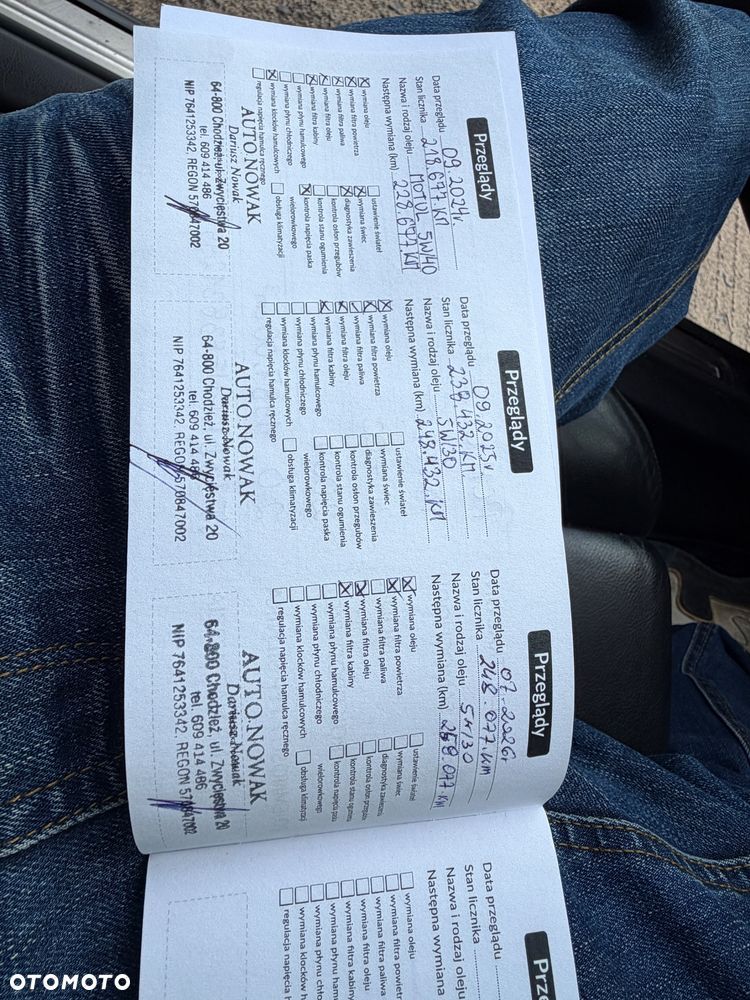 Przeglądy
Data przeglądu 09.2024r.
Stan licznika 218.677.KM
Nazwa i rodzaj oleju MOTUL 5W40
Następna wymiana (km) 228.677.KM
wymiana oleju
wymiana filtra powietrza
wymiana filtra paliwa
wymiana filtra oleju
wymiana filtra kabiny
wymiana płynu hamulcowego
wymiana płynu chłodniczego
wymiana klocków hamulcowych
regulacja napięcia hamulca ręcznego
ustawienie świateł
wymiana świec
diagnostyka zawieszenia
kontrola osłon przegubów
kontrola stanu ogumienia
kontrola napięcia paska
wielorowkowego
obsługa klimatyzacji
AUTO.NOWAK
Dariusz Nowak
64-800 Chodzież, ul. Zwycięstwa 20
tel. 609 414 486
NIP 7641253342, REGON 570847002
Przeglądy
Data przeglądu 09.2025r
Stan licznika 238.432.KM
Nazwa i rodzaj oleju 5W30
Następna wymiana (km) 248.432.KM
wymiana oleju
wymiana filtra powietrza
wymiana filtra paliwa
wymiana filtra oleju
wymiana filtra kabiny
wymiana płynu hamulcowego
wymiana płynu chłodniczego
wymiana klocków hamulcowych
regulacja napięcia hamulca ręcznego
ustawienie świateł
wymiana świec
diagnostyka zawieszenia
kontrola osłon przegubów
kontrola stanu ogumienia
kontrola napięcia paska
wielorowkowego
obsługa klimatyzacji
AUTO.NOWAK
Dariusz Nowak
64-800 Chodzież, ul. Zwycięstwa 20
tel. 609 414 486
NIP 7641253342, REGON 570847002
Przeglądy
Data przeglądu 07.2026r
Stan licznika 248.077.KM
Nazwa i rodzaj oleju 5W30
Następna wymiana (km) 258.077.KM
wymiana oleju
wymiana filtra powietrza
wymiana filtra paliwa
wymiana filtra oleju
wymiana filtra kabiny
wymiana płynu hamulcowego
wymiana płynu chłodniczego
wymiana klocków hamulcowych
regulacja napięcia hamulca ręcznego
ustawienie świateł
wymiana świec
diagnostyka zawieszenia
kontrola osłon przegubów
kontrola stanu ogumienia
kontrola napięcia paska
wielorowkowego
obsługa klimatyzacji
AUTO.NOWAK
Dariusz Nowak
64-800 Chodzież, ul. Zwycięstwa 20
tel. 609 414 486
NIP 7641253342, REGON 570847002
Prz
Data przeglądu
Stan licznika
Nazwa i rodzaj oleju
Następna wymiana
wymiana oleju
wymiana filtra powietr
wymiana filtra paliwa
wymiana filtra oleju
wymiana filtra kabiny
wymiana płynu ham
wymiana płynu chło
wymiana klocków h
regulacja napięcia h
OTOMOTO